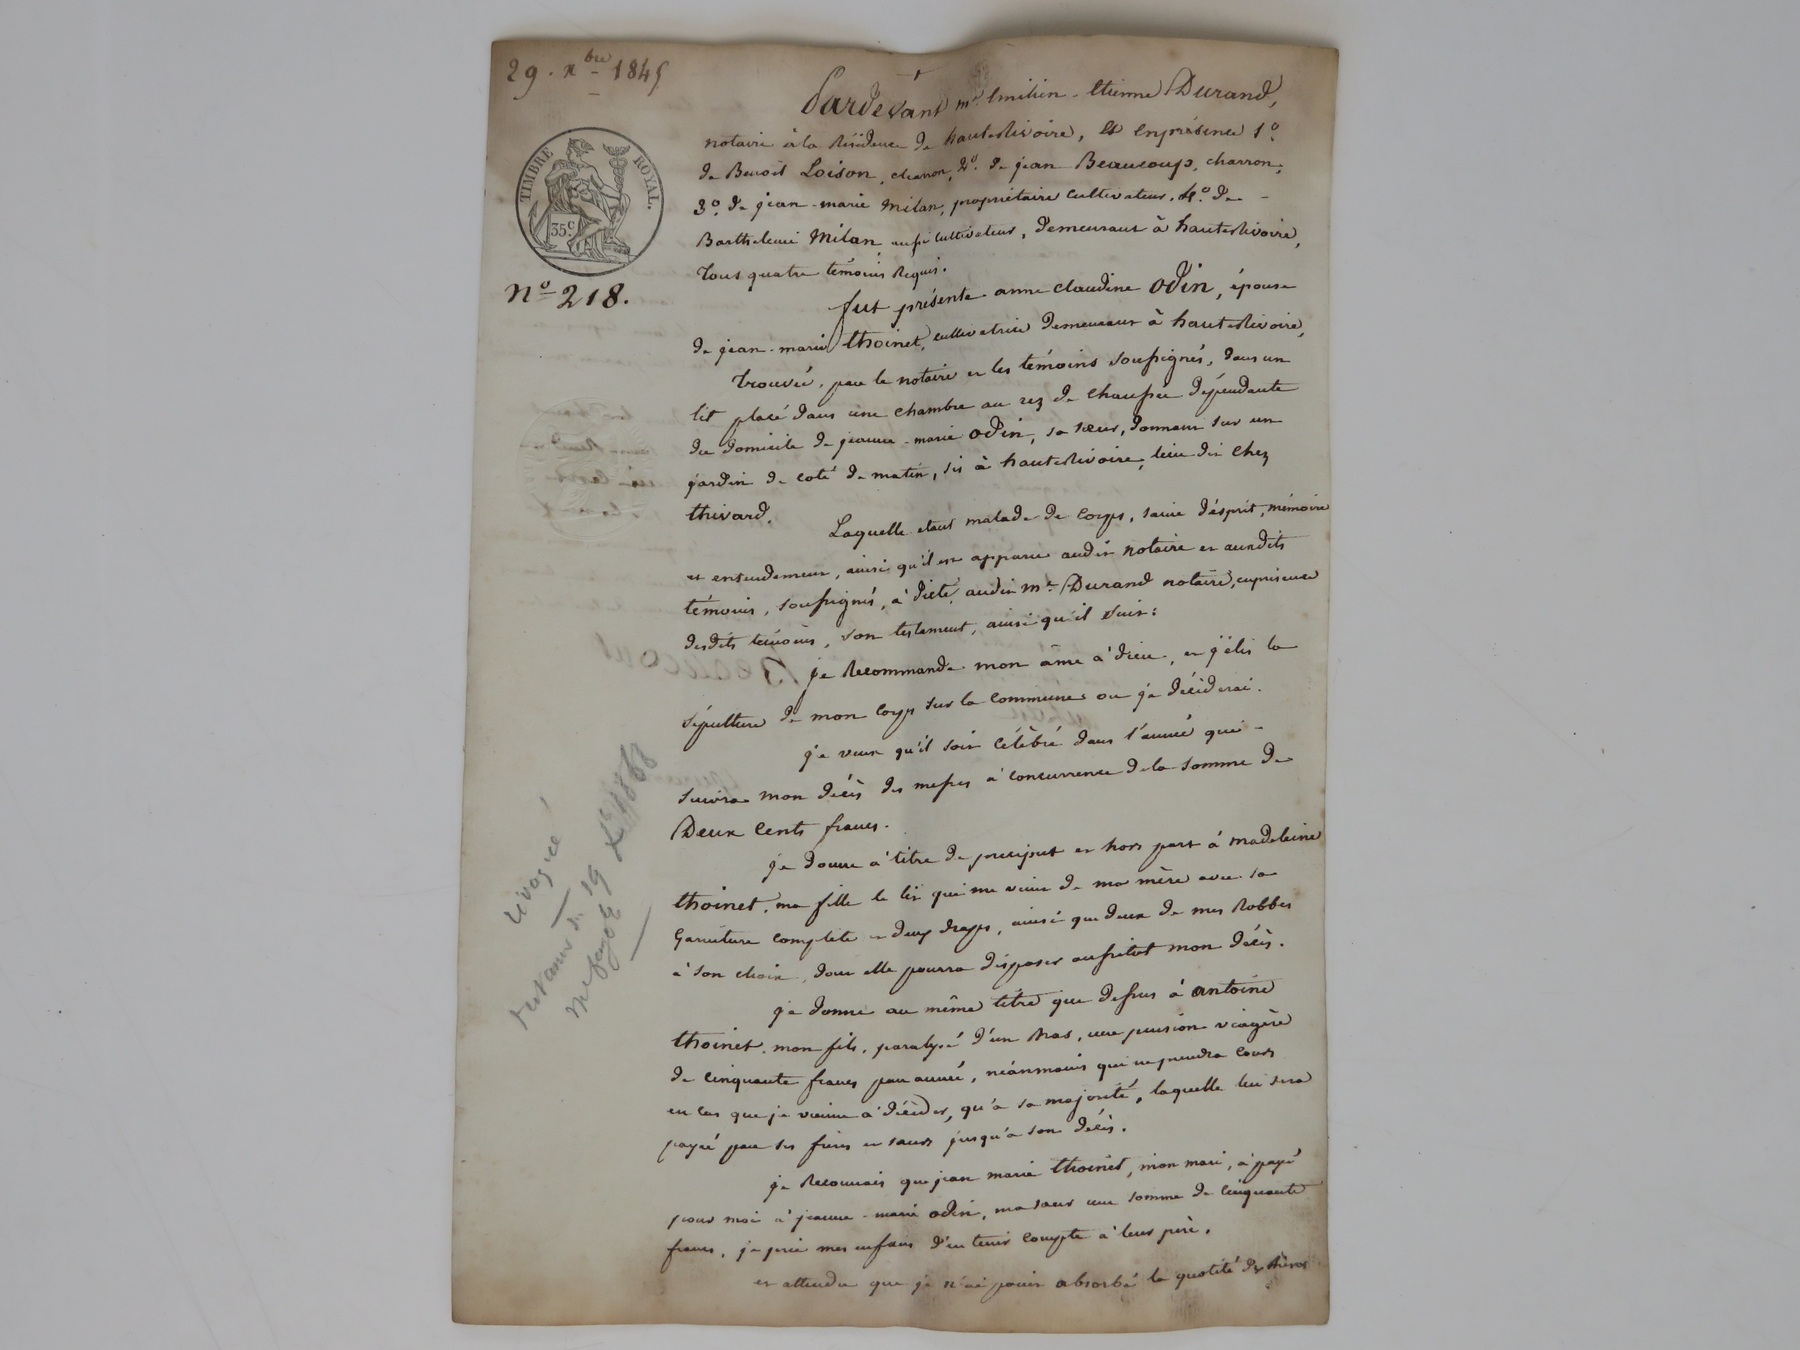 29. nbre 1845
TIMBRE ROYAL.
35c
No 218.
Pardevant me Emilien-Etienne Durand,
notaire à la Résidence de hauterivoire, et en présence 1o
de Benoit Loison, charron, 2o de jean Beaucoup, charron,
3o de jean-marie Milan, propriétaire cultivateur, 4o de
Barthelemi Milan aussi cultivateur, demeurant à hauterivoire,
tous quatre témoins Requis.
fut présente anne claudine Odin, épouse
de jean-marie thoinet, cultivatrice demeurant à hauterivoire,
trouvée, par le notaire et les témoins soussignés, dans un
lit placé dans une chambre au rez de chaussée dépendante
du domicile de jeanne-marie Odin, sa sœur, donnant sur un
jardin de coté de matin, sis à hauterivoire, lieu dit chez
thivard.
Laquelle étant malade de corps, saine d'ésprit, mémoire
et entendement, ainsi qu'il est apparu audit notaire et auxdits
témoins, soussignés, à dicté audit me Durand notaire, en présence
desdits témoins, son testament, ainsi qu'il suit:
je Recommande mon âme à dieu, et j'élis la
sépulture de mon corps sur la commune ou je déciderai.
je veux qu'il soit célébré dans l'année qui
suivra mon décès des messes à concurrence de la somme de
Deux cents francs.
je donne à titre de preciput et hors part à madeleine
thoinet, ma fille le lit qui me vient de ma mère avec sa
garniture complete et deux draps, ainsi que deux de mes Robbes
à son choix, dont elle pourra disposer aussitot mon décès.
je donne au même titre que dessus à antoine
thoinet, mon fils, paralysé d'un bras, une pension viagère
de cinquante francs par année, néanmoins qui ne prendra cours
en cas que je vienne à décéder, qu'à sa majorité, laquelle lui sera
payée par ses frères et sœurs jusqu'à son décès.
je Reconnais que jean marie thoinet, mon mari, à payé
pour moi à jeanne-marie odin, ma sœur une somme de cinquante
francs, je prie mes enfans d'en tenir compte à leur père.
et attendu que je n'ai point absorbé la quotité de
révoqué
testament du 19